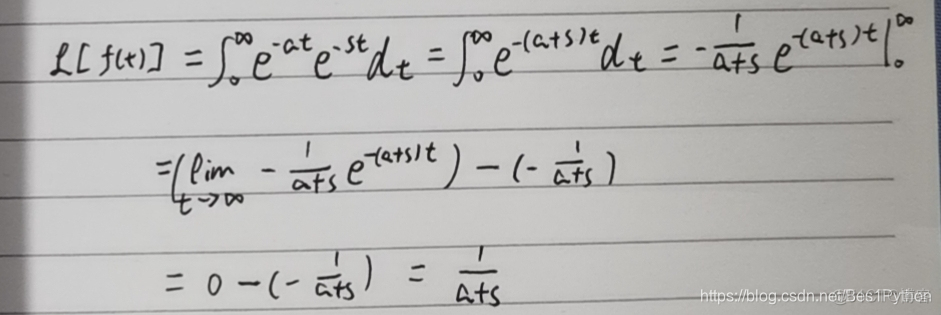 ℒ[f(t)] = ∫₀^∞ e^{-at} e^{-st} dt = ∫₀^∞ e^{-(a+s)t} dt = -\frac{1}{a+s} e^{-(a+s)t} |₀^∞
= (lim_{t→∞} -\frac{1}{a+s} e^{-(a+s)t}) - (-\frac{1}{a+s})
= 0 - (-\frac{1}{a+s}) = \frac{1}{a+s}
https://blog.csdn.net/Bes1Python